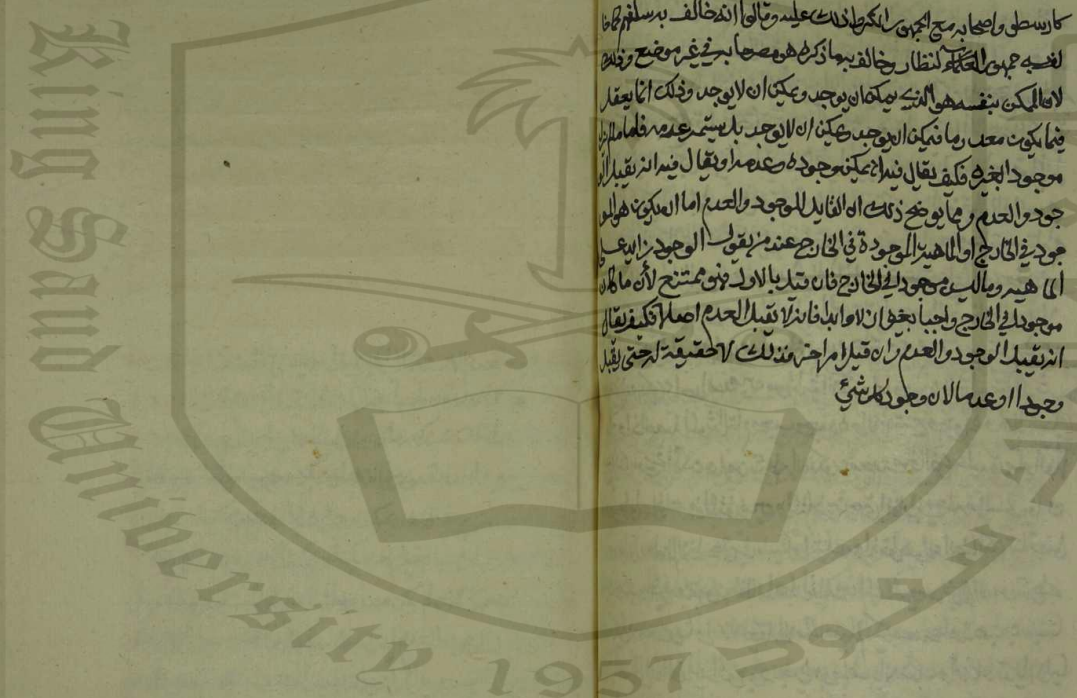 كارسطو واصحابه مع الجمهور انكروا ذلك عليه وقالوا انه خالف به سلفهم كما خا
لف به جمهور النظار وخالف به ما ذكره هو مصرحا به في غير موضع وذلك
لان الممكن بنفسه هو الذي يمكن ان يوجد ويمكن ان لا يوجد وذلك انما يعقل
فيما يكون معدوما فيمكن ان يوجد ويمكن ان لا يوجد بل يستمر عدمه فاما ما لم يزل
موجودا بغيره فكيف يقال فيه انه يمكن وجوده وعدمه او يقال فيه انه يقبل الو
جود والعدم ومما يوضح ذلك ان القابل للوجود والعدم اما ان يكون هو المو
جود في الخارج او الماهية الموجودة في الخارج عند من يقول الوجود زايد على
الماهية وما ليس موجودا في الخارج فان قيل بالاول فهو ممتنع لأن ما كان
موجودا في الخارج واجبا بغيره ازلا وابدا فانه لا يقبل العدم اصلا فكيف يقال
انه يقبل الوجود والعدم وان قيل امر اخر فذلك لا حقيقة له حتى يقبل
وجودا او عدما لان وجود كل شيئ
King Saud University
1957